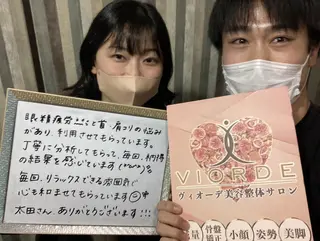 眼精疲労と首、肩こりの悩み
があり、利用させてもらっています。
丁寧に分析してもらって、毎回、納得
の結果を感じています
毎回、リラックスできる雰囲気で
心も和ませてもらっています
太田さん ありがとうございます!!!
VIORDE
ヴィオーデ美容整体サロン
量
骨盤
矯正
小顔
姿勢
美脚